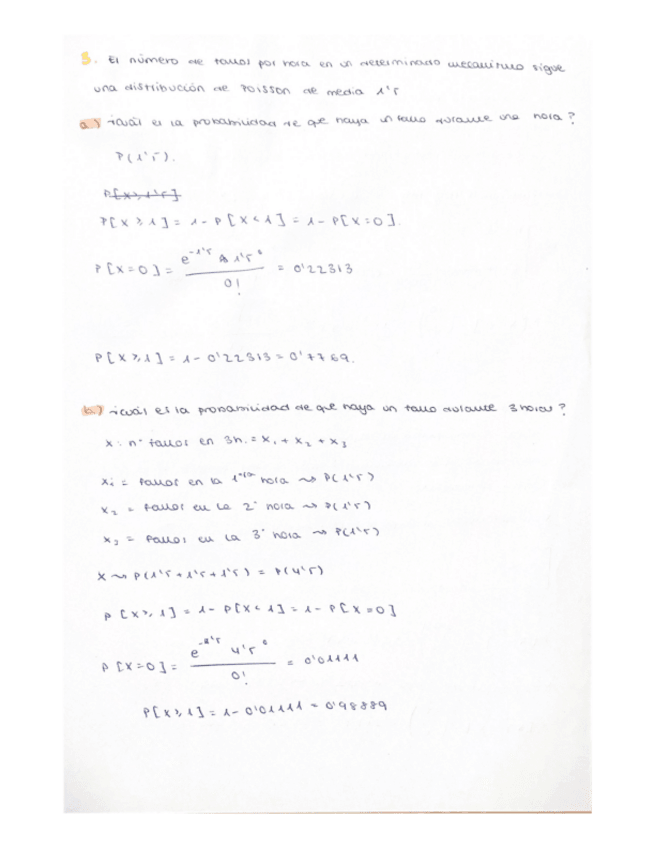 3. El número de fallos por hora en un determinado mecanismo sigue
una distribución de Poisson de media 1'5
a) ¿cuál es la probabilidad de que haya un fallo durante una hora?
P(1'5).
P[X≥1'5]
P[X≥1] = 1 - P[X<1] = 1 - P[X=0].
P[X=0] = e^-1'5 1'5^0 / 0! = 0'22313
P[X≥1] = 1 - 0'22313 = 0'7769.
b) ¿cuál es la probabilidad de que haya un fallo durante 3 horas?
X: nº fallos en 3h. = X1 + X2 + X3
X1 = fallos en la 1era hora ⇝ P(1'5)
X2 = fallos en la 2ª hora ⇝ P(1'5)
X3 = fallos en la 3ª hora ⇝ P(1'5)
X ⇝ P(1'5 + 1'5 + 1'5) = P(4'5)
P[X≥1] = 1 - P[X<1] = 1 - P[X=0]
P[X=0] = e^-4'5 4'5^0 / 0! = 0'01111
P[X≥1] = 1 - 0'01111 = 0'98889